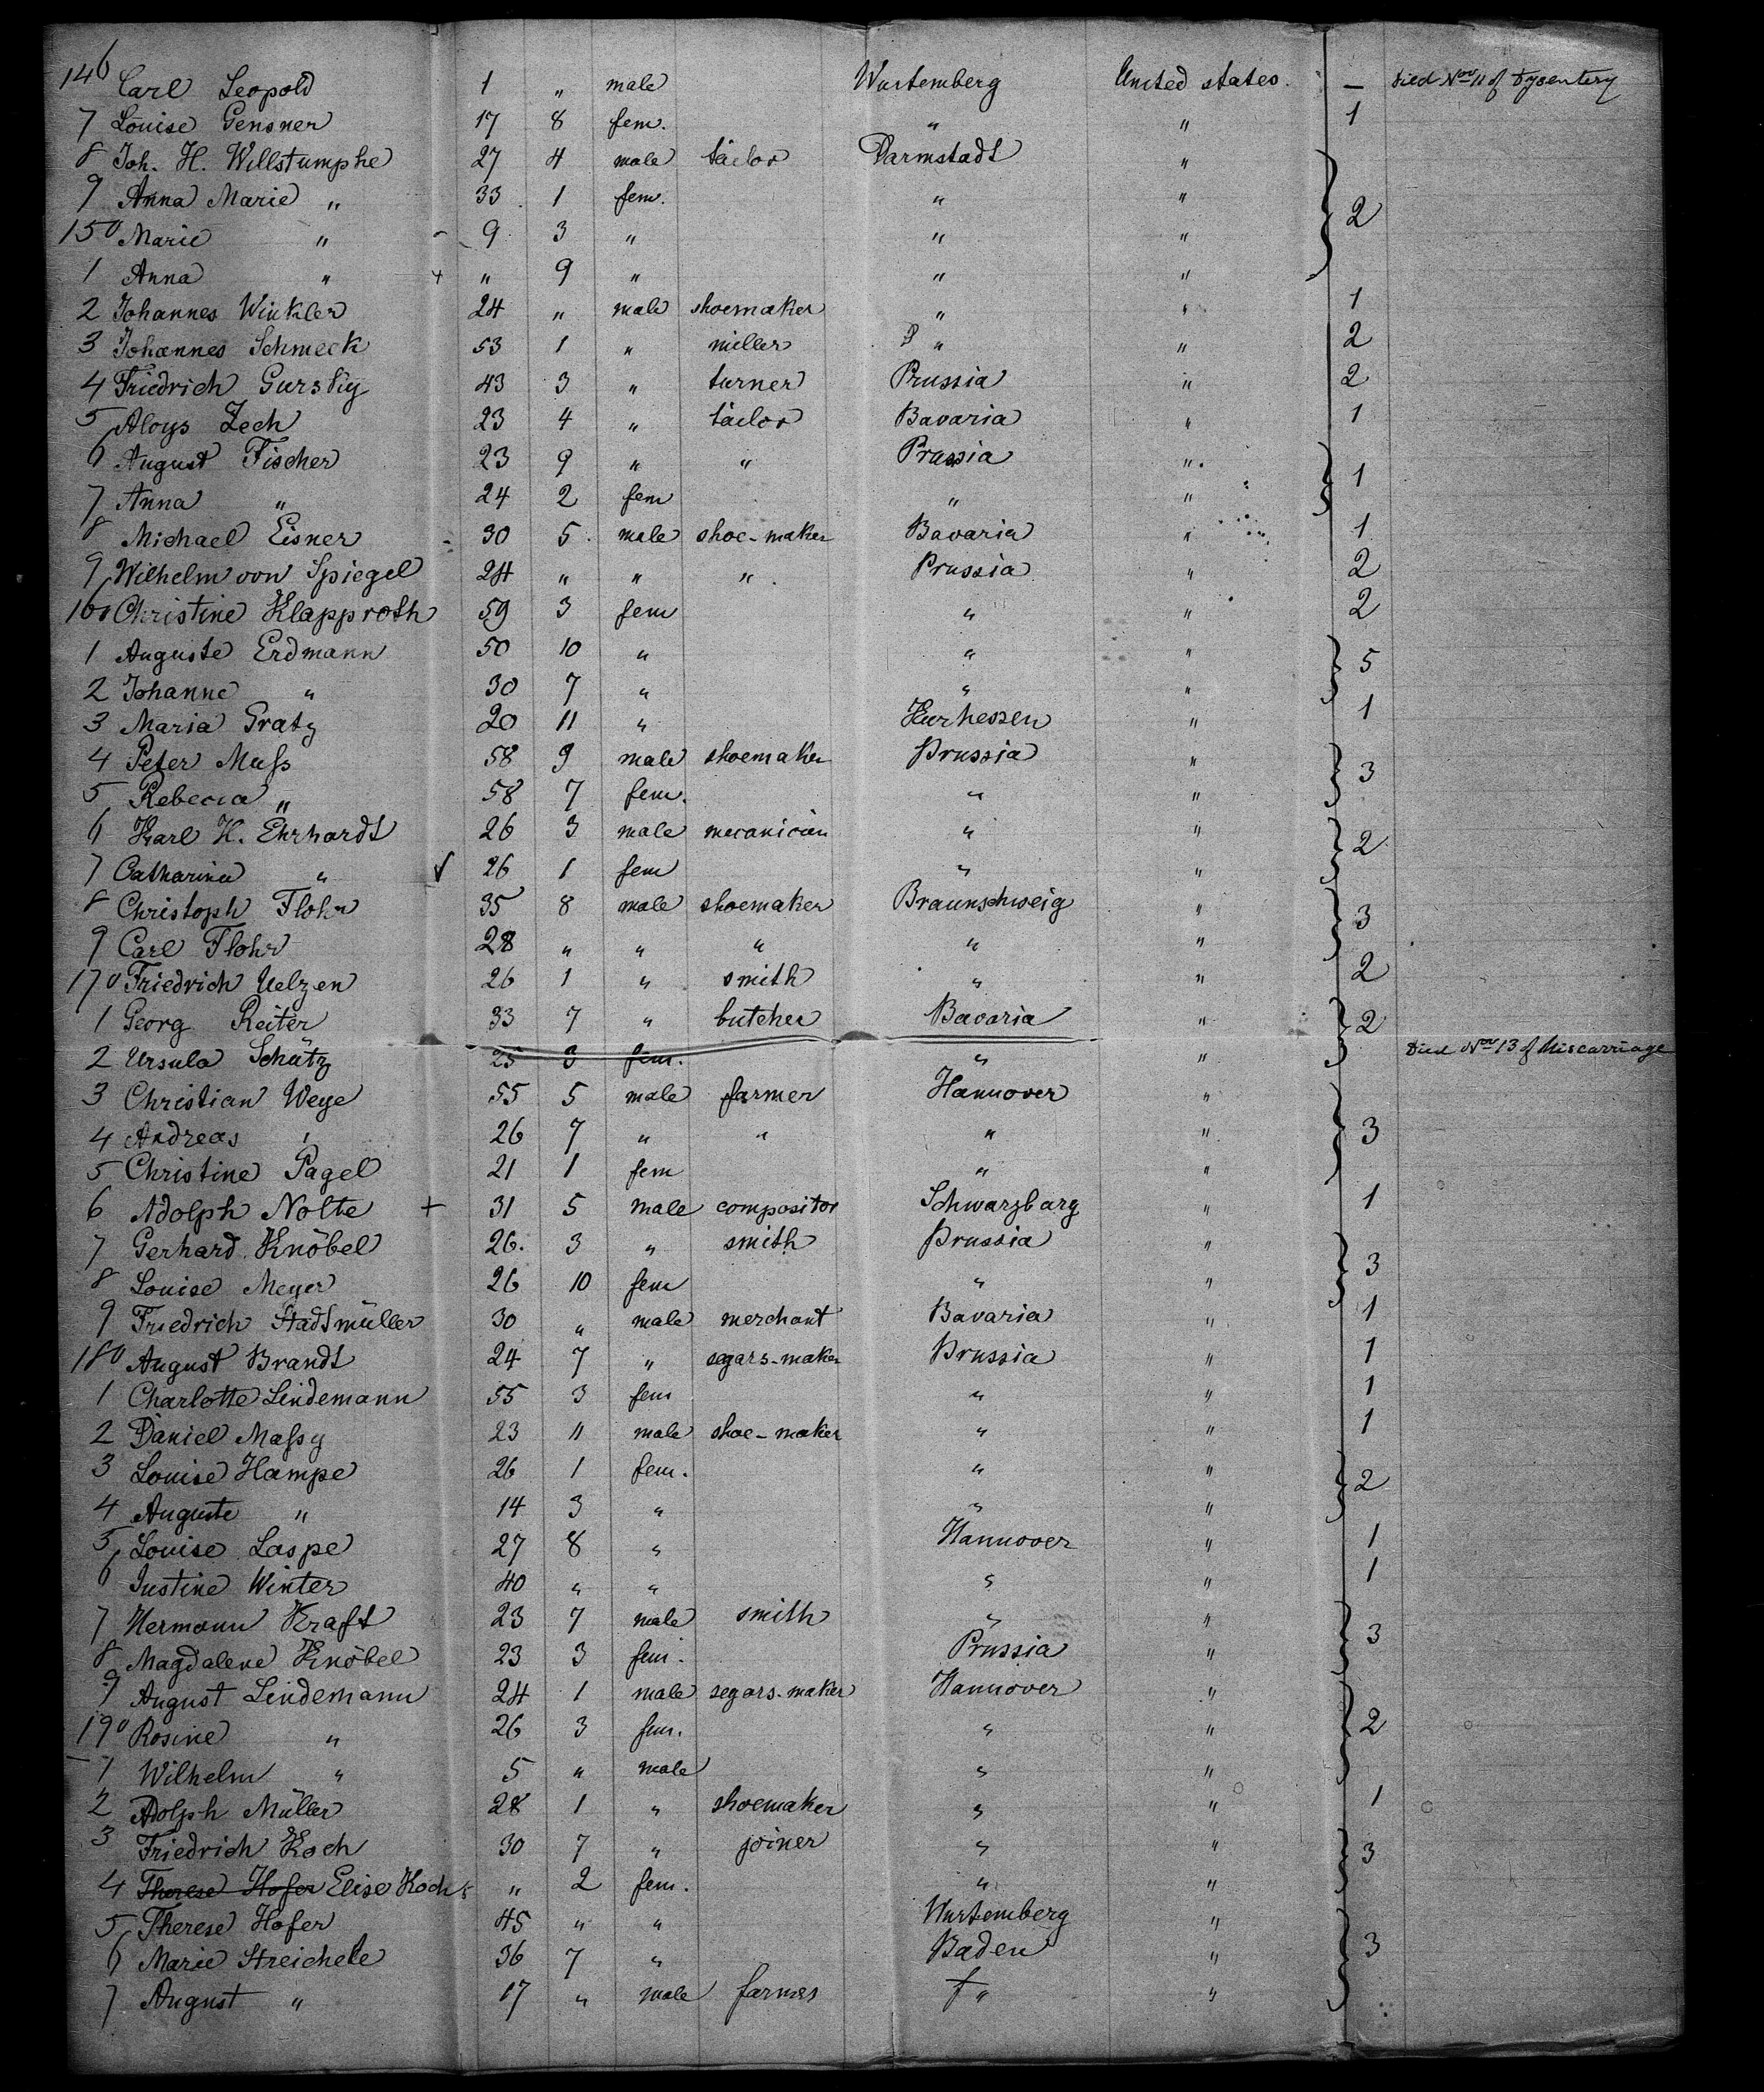 146 Carl Leopold 1 " male Wurtemberg United states. — Died Nov 11 of Dysentery
7 Louise Gensner 17 8 fem. " " 1
8 Joh. H. Willstumphe 27 4 male tailor Darmstadt "
9 Anna Marie " 33 1 fem. " " 2
150 Marie " 9 3 " " "
1 Anna " + " 9 " " "
2 Johannes Winkler 24 " male shoemaker " " 1
3 Johannes Schmeck 53 1 " miller " " 2
4 Friedrich Gursky 43 3 " turner Prussia " 2
5 Aloys Zech 23 4 " tailor Bavaria " 1
6 August Fischer 23 9 " " Prussia " 1
7 Anna " 24 2 fem " "
8 Michael Eisner 30 5 male shoe-maker Bavaria " 1
9 Wilhelm von Spiegel 24 " " " Prussia " 2
160 Christine Klapproth 59 3 fem " " 2
1 Auguste Erdmann 50 10 " " " 5
2 Johanne " 30 7 " " "
3 Maria Gratz 20 11 " Kurhessen " 1
4 Peter Muſs 58 9 male shoemaker Prussia " 3
5 Rebecca " 58 7 fem. " "
6 Karl H. Ehrhardt 26 3 male mecanician " " 2
7 Catharina " √ 26 1 fem " "
8 Christoph Flohr 35 8 male shoemaker Braunschweig " 3
9 Carl Flohr 28 " " " " "
170 Friedrich Uelzen 26 1 " smith " " 2
1 Georg Reiter 33 7 " butcher Bavaria " 2
2 Ursula Schütz 25 3 fem. " " Died Nov 13 of Miscarriage
3 Christian Weye 55 5 male farmer Hannover "
4 Andreas " 26 7 " " " " 3
5 Christine Pagel 21 1 fem " "
6 Adolph Nolte + 31 5 male compositor Schwarzburg " 1
7 Gerhard Knöbel 26. 3 " smith Prussia " 3
8 Louise Meyer 26 10 fem " "
9 Friedrich Stadtmüller 30 " male merchant Bavaria " 1
180 August Brandt 24 7 " segars-maker Prussia " 1
1 Charlotte Lindemann 55 3 fem " " 1
2 Daniel Maſsy 23 11 male shoe-maker " " 1
3 Louise Hampe 26 1 fem. " " 2
4 Auguste " 14 3 " " "
5 Louise Laspe 27 8 " Hannover " 1
6 Justine Winter 40 " " " " 1
7 Hermann Kraft 23 7 male smith " " 3
8 Magdalene Knöbel 23 3 fem. Prussia "
9 August Lindemann 24 1 male segars-maker Hannover "
190 Rosine " 26 3 fem. " " 2
1 Wilhelm " 5 " male " "
2 Adolph Müller 28 1 " shoemaker " " 1
3 Friedrich Koch 30 7 " joiner " " 3
4 Therese Hofer Elise Koch " 2 fem. " "
5 Therese Hofer 45 " " Wurtemberg "
6 Marie Streichele 36 7 " Baden " 3
7 August " 17 " male farmer " "